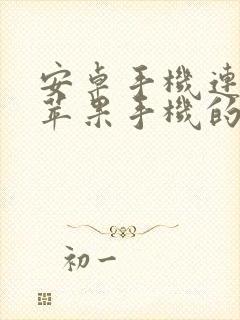 安卓手機連
苹果手機的
初一